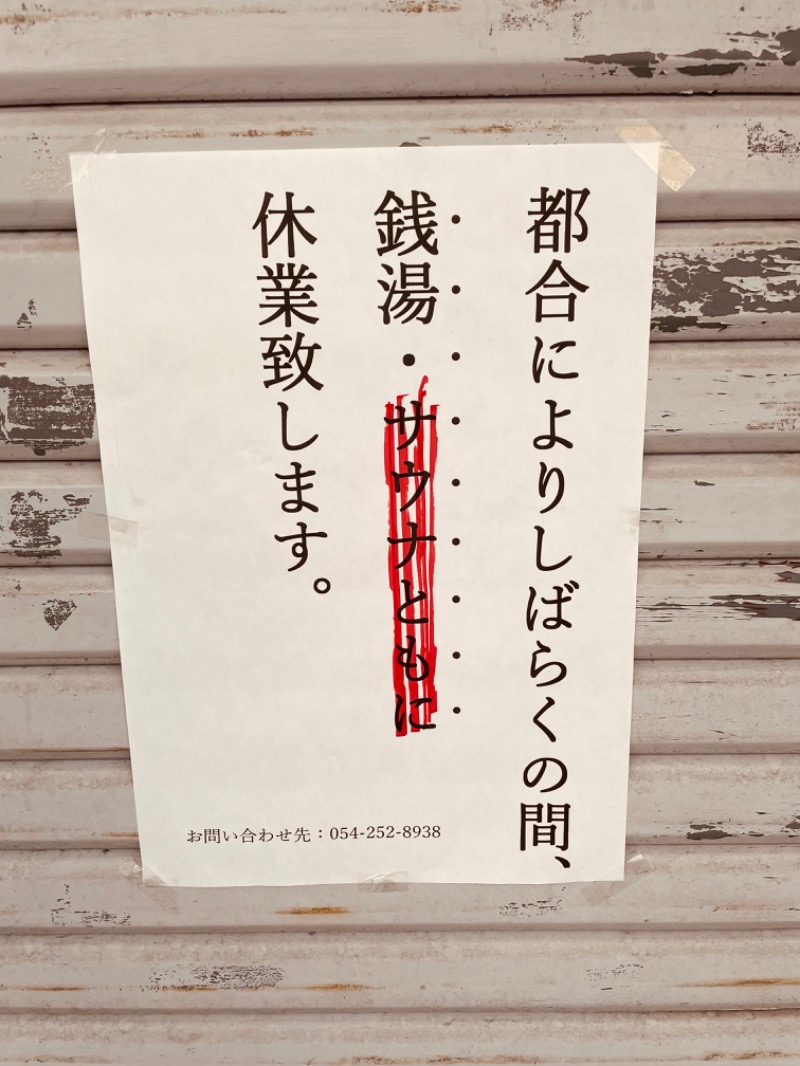 都合によりしばらくの間、
銭湯・サウナともに
休業致します。
お問い合わせ先：054-252-8938